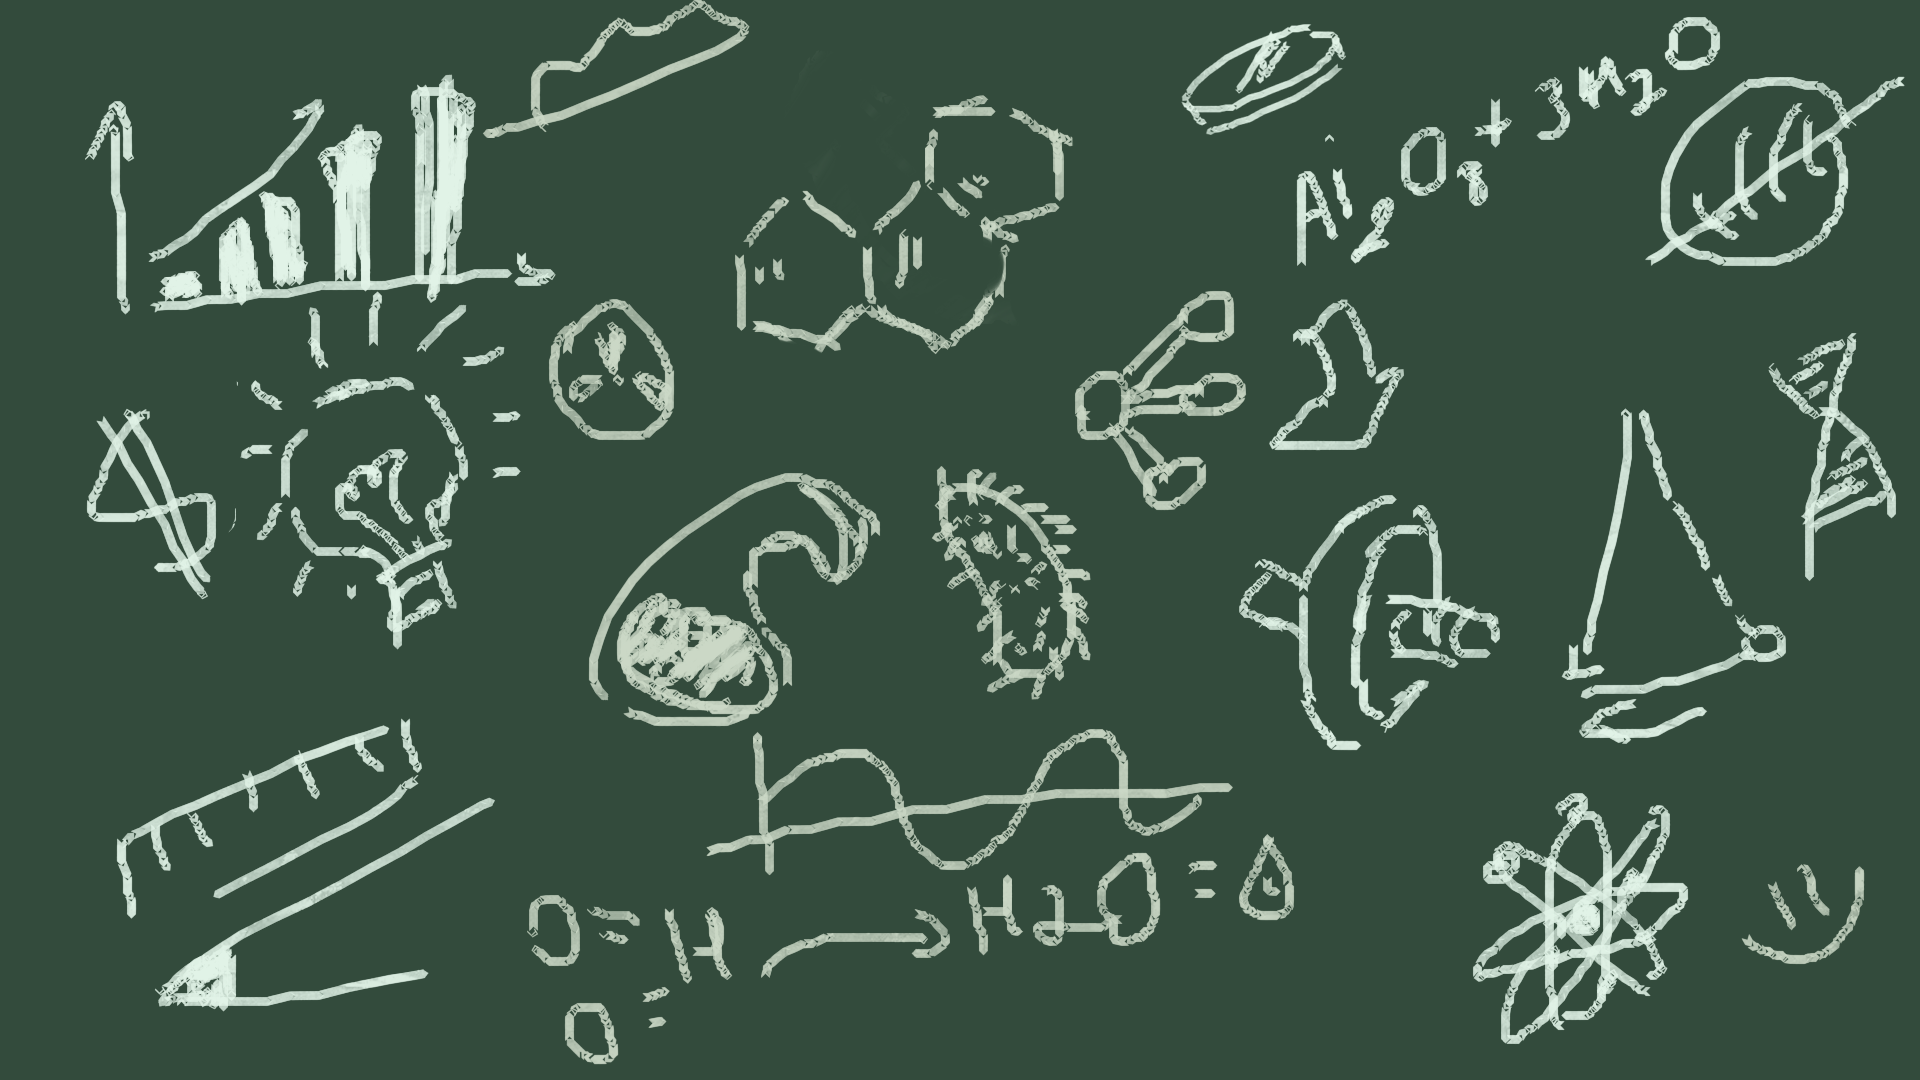 Al2O3 + 3H2O
O = H → H2O = 
O =